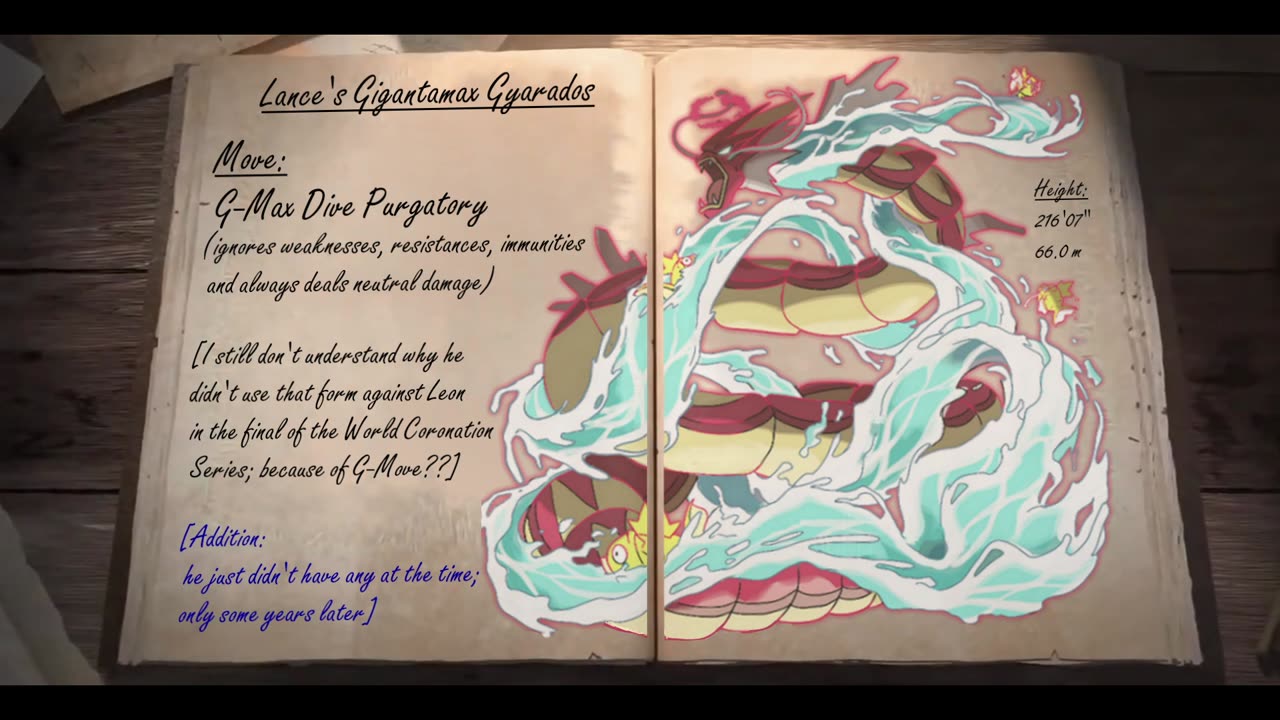 Lance's Gigantamax Gyarados
Move:
G-Max Dive Purgatory
(ignores weaknesses, resistances, immunities
and always deals neutral damage)
[I still don't understand why he
didn't use that form against Leon
in the final of the World Coronation
Series; because of G-Move??]
[Addition:
he just didn't have any at the time;
only some years later]
Height:
216'07"
66.0 m